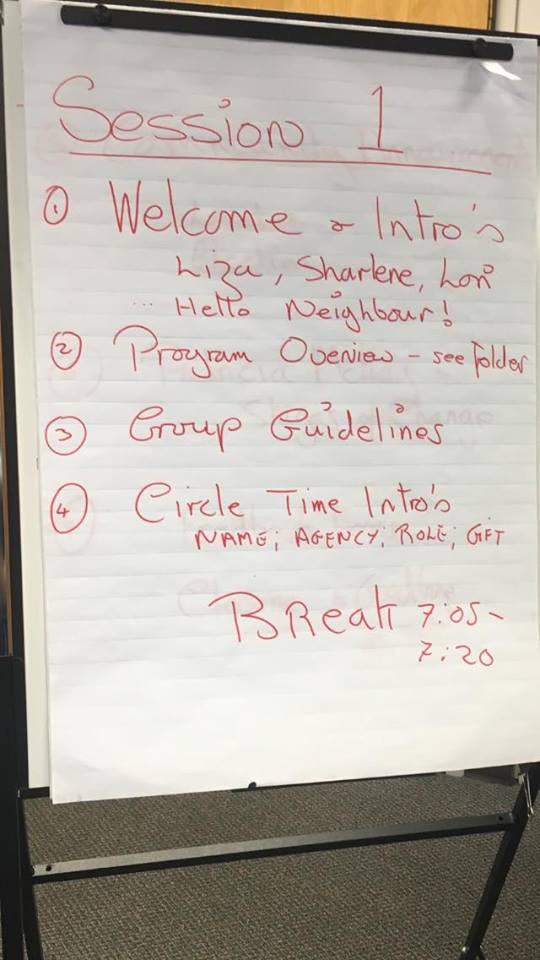 Session 1
① Welcome & Intro's
Liza, Sharlene, Lori
... Hello Neighbour!
② Program Overview - see Folder
③ Group Guidelines
④ Circle Time Intro's
NAME; AGENCY; ROLE; GFT
Break 7:05-
7:20